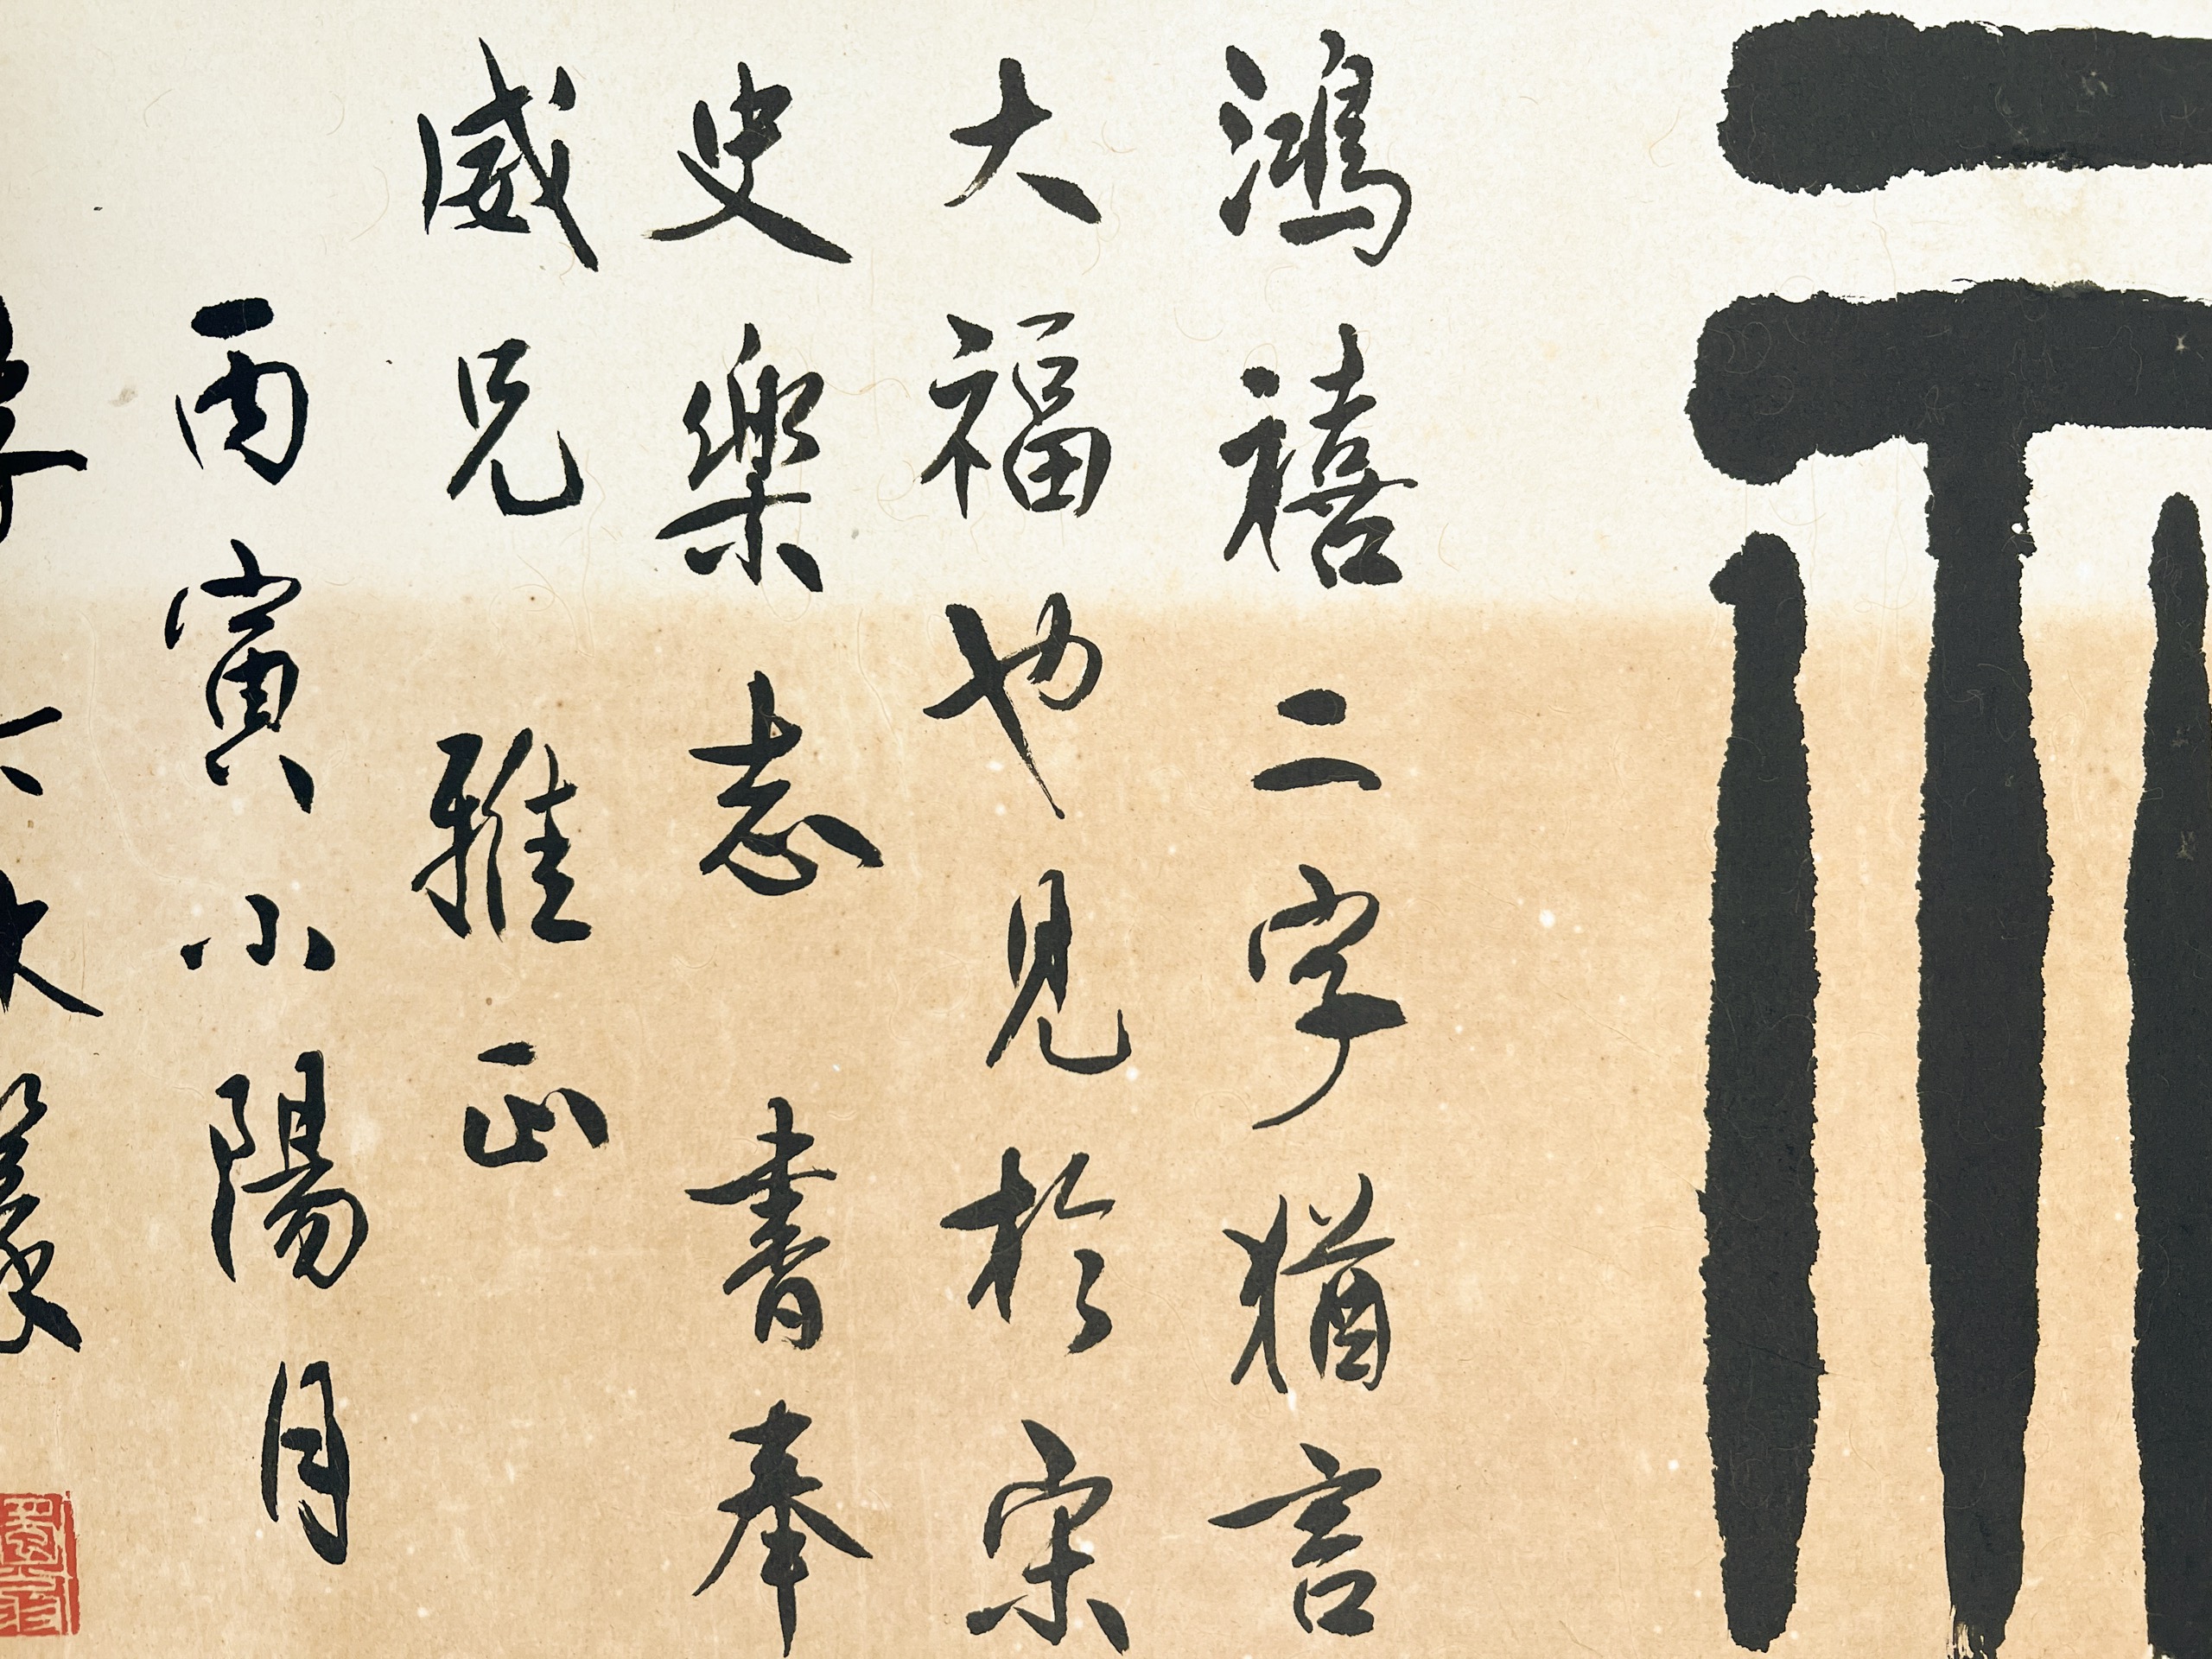 鴻禧二字猶言
大福也見於宋
史樂志書奉
威兄雅正
丙寅小陽月